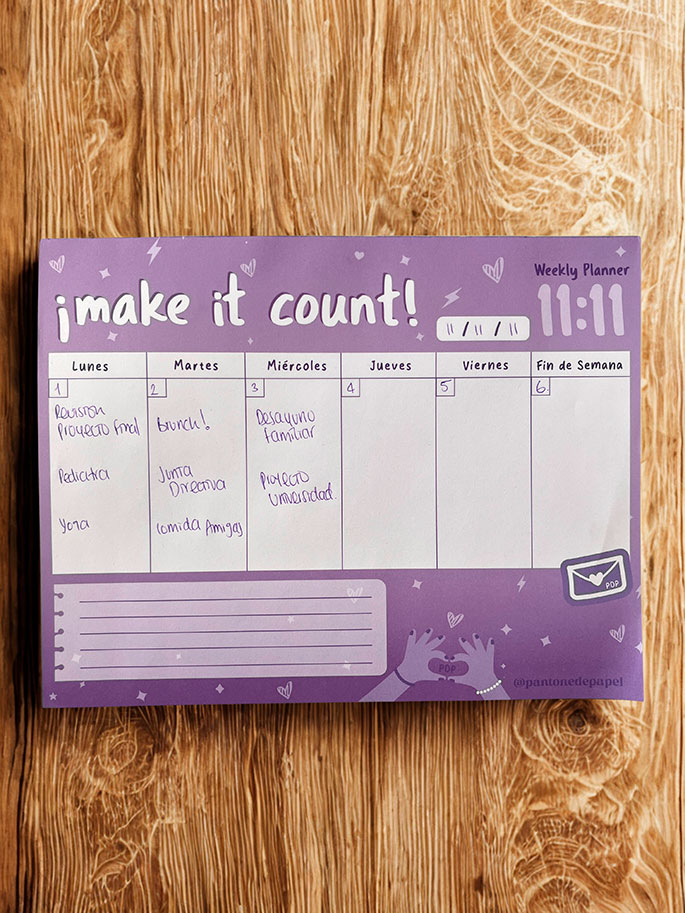 ¡make it count!
Weekly Planner
11:11
11 / 11 / 11
Lunes Martes Miércoles Jueves Viernes Fin de Semana
1 2 3 4 5 6.
Revision
Proyecto final
Pediatra
Yoga
Brunch!
Junta
Directiva
Comida Amigas
Desayuno
Familiar
Proyecto
Universidad.
PDP
PDP
@pantonedepapel